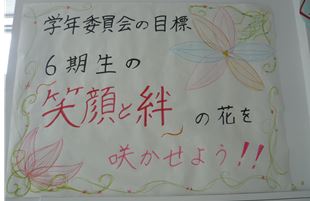 学年委員会の目標
6期生の
笑顔と絆の花を
咲かせよう!!